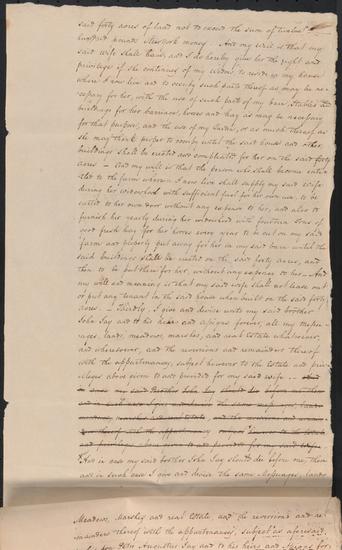 said forty acres of land not to exceed the sum of twelve
hundred pounds Newyork money. And my will is that my
said wife shall have, and I do hereby give her the right and
privilege if she continues of my widow to reside in my house
where I now live and to occupy such parts thereof as may be ne-
cessary for her, with the use of such part of my barn, stables and
buildings for her carriage, horses and hay as may be necessary
for that purpose, and the use of my Garden, or as much thereof as
she may think proper to occupy until the said house and other
buildings shall be erected and completed for her on the said forty
acres — And my will is that the person who shall become entit-
led to the farm whereon I now live shall supply my said wife
during her widowhood with sufficient fuel for her own use, to be
carted to her own door without any expense to her, and also to
furnish her yearly during her widowhood with fourteen tons of
good fresh hay for her horses every year to be cut on my said
farm and properly put away for her in my said barn until the
said buildings shall be erected on the said forty acres, and
then to be put there for her, without any expense to her — And
my will and meaning is that my said wife shall not lease out
or put any tenant in the said house when built on the said forty
acres. — Thirdly. I give and devise unto my said brother
John Jay and to his heirs and assigns forever, all my messua-
ges, lands, meadows, marshes, and real estate whatsoever,
and wheresoever, and the reversions and remainders thereof
with the appurtenances, subject however to the estate and privi-
leges above given to and provided for my said wife — And
in case my said Brother John Jay should die before me then
and in such case I give and devise the same
meadows, marshes and real estate and the reversions
thereof with the appurtenances subject however to the estate
and privileges above given to and provided for my said wife
And in case my said brother John Jay should die before me, then
and in such case I give and devise the same Messuages, lands
Meadows, Marshes and real Estate, and the reversions and re-
mainders thereof with the appurtenances, subject as aforesaid.
Peter Augustus Jay and to his heirs and assigns for